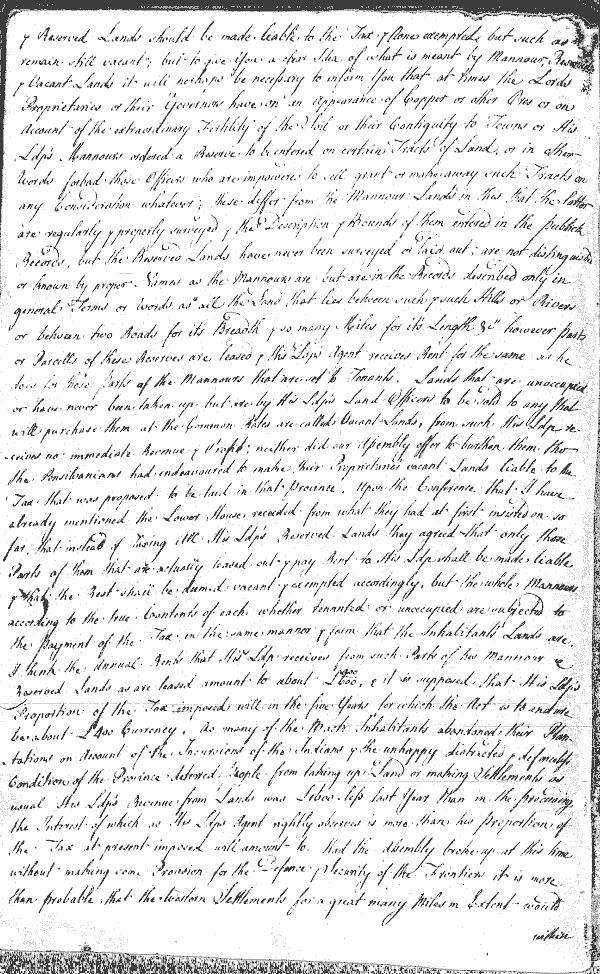 & Reserved Lands should be made liable to the Tax & None exempted but such as
remain still vacant; but to give You a clear Idea of what is meant by Mannour, Reserved
& Vacant Lands it will perhaps be necessary to inform You that at times the Lords
Proprietaries or their Governors have on an Appearance of Copper or other Ores or on
Account of the extraordinary Fertility of the Soil or their Contiguity to Towns or His
Ldp's Mannours ordered a Reserve to be entered on certain Tracts of Land, or in other
Words forbad those Officers who are impowered to sell grant or make away such Tracts on
any Consideration whatever; these differ from the Mannour Lands in this that the latter
are regularly & properly surveyed & the Description & Bounds of them entered in the publick
Records, but the Reserved Lands have never been surveyed or laid out; are not distinguished
or known by proper Names as the Mannours are but are in the Records described only in
general Terms or Words as all the Land that lies between such & such Hills or Rivers
or between two Roads for its Breadth & so many Miles for its Length &c however parts
or Parcells of these Reserves are leased & His Ldp's Agent receives Rent for the same as he
does for those parts of the Mannours that are set to Tenants. Lands that are unoccupied
or have never been taken up but are by His Ldp's Land Officers to be sold to any that
will purchase them at the Common Rates are called Vacant Lands, from such His Ldp re-
ceives no immediate Revenue & Profit; neither did our Assembly offer to burthen them tho
the Pensilvanians had endeavoured to make their Proprietaries vacant Lands liable to the
Tax that was proposed to be laid in that Province. Upon the Conference that I have
already mentioned the Lower House receeded from what they had at first insisted on so
far, that instead of Taxing All His Ldp's Reserved Lands they agreed that only those
Parts of them that are actually leased out & pay Rent to His Ldp shall be made liable
& that the Rest shall be deemed vacant & exempted accordingly, but the whole Mannours
according to the true Contents of each whether tenanted or unoccupied are subjected to
the Payment of the Tax in the same manner & form that the Inhabitants Lands are.
I think the Annual Rents that His Ldp receives from such Parts of his Mannour &
Reserved Lands as are leased amount to about £600, & it is supposed that His Ldp's
Proportion of the Tax imposed will in the five Years for which the Act is to endure
be about £400 Currency. As many of the Inhabitants abandoned their Plan-
tations on Account of the Incursions of the Indians & the unhappy distracted & defenceless
Condition of the Province deterred People from taking up Land or making Settlements as
usual His Ldp's Revenue from Lands was less last Year than in the preceeding
the Interest of which as His Ldp's Agent rightly observes is more than his proportion of
the Tax at present imposed will amount to. Had the Assembly broke up at this time
without making some Provision for the Defence & Security of the Frontiers it is more
than probable that the Western Settlements for a great many Miles in Extent would
within